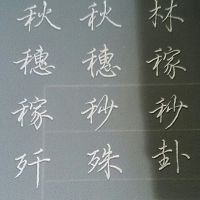 秋秋林
穗穗稼
稼秒秒
歼殊卦